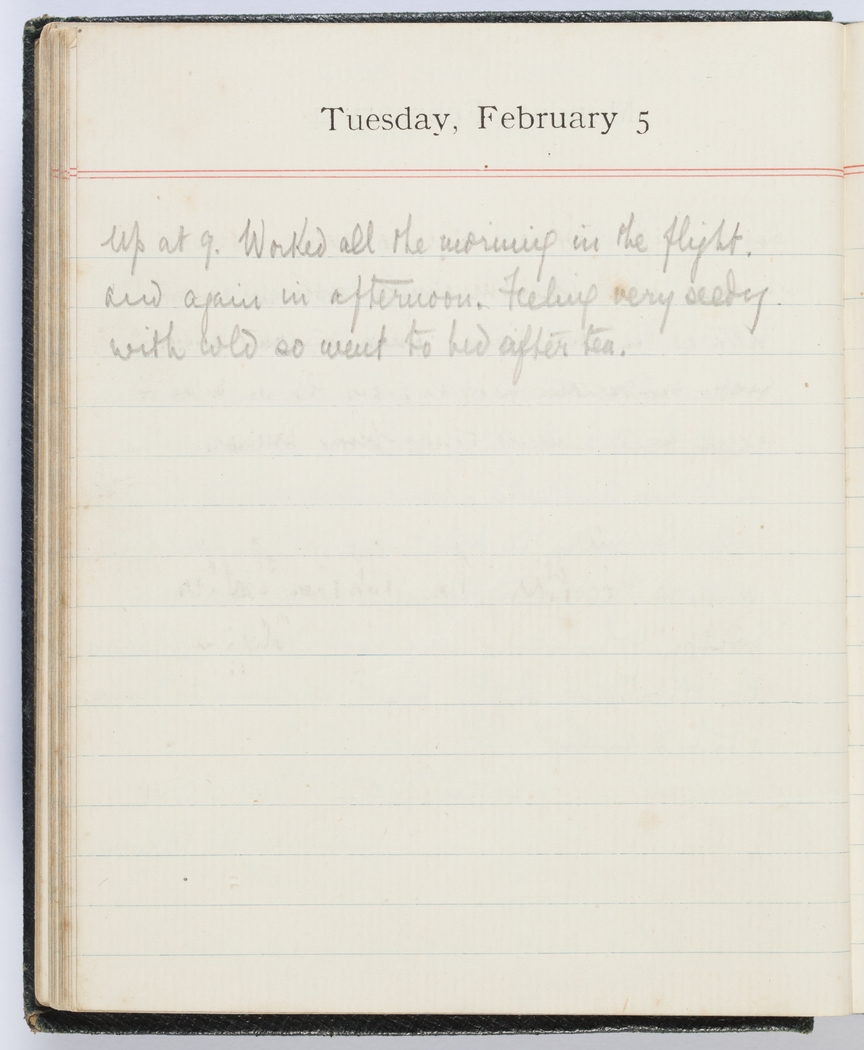 Tuesday, February 5
Up at 9. Worked all the morning in the flight.
and again in afternoon. Feeling very seedy
with cold so went to bed after tea.